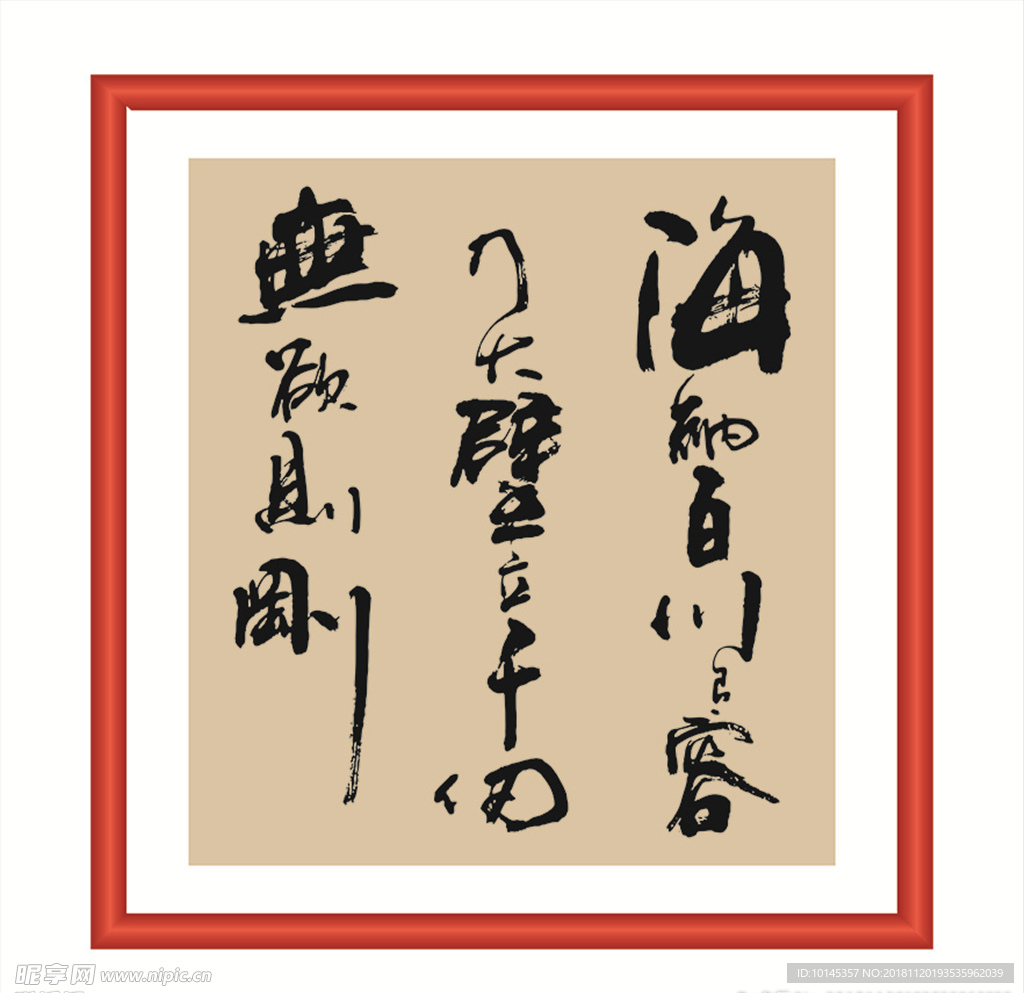 海納百川有容
乃大壁立千仞
無欲則剛
昵享网 www.nipic.cn
ID:10145357 NO:20181120193535962039